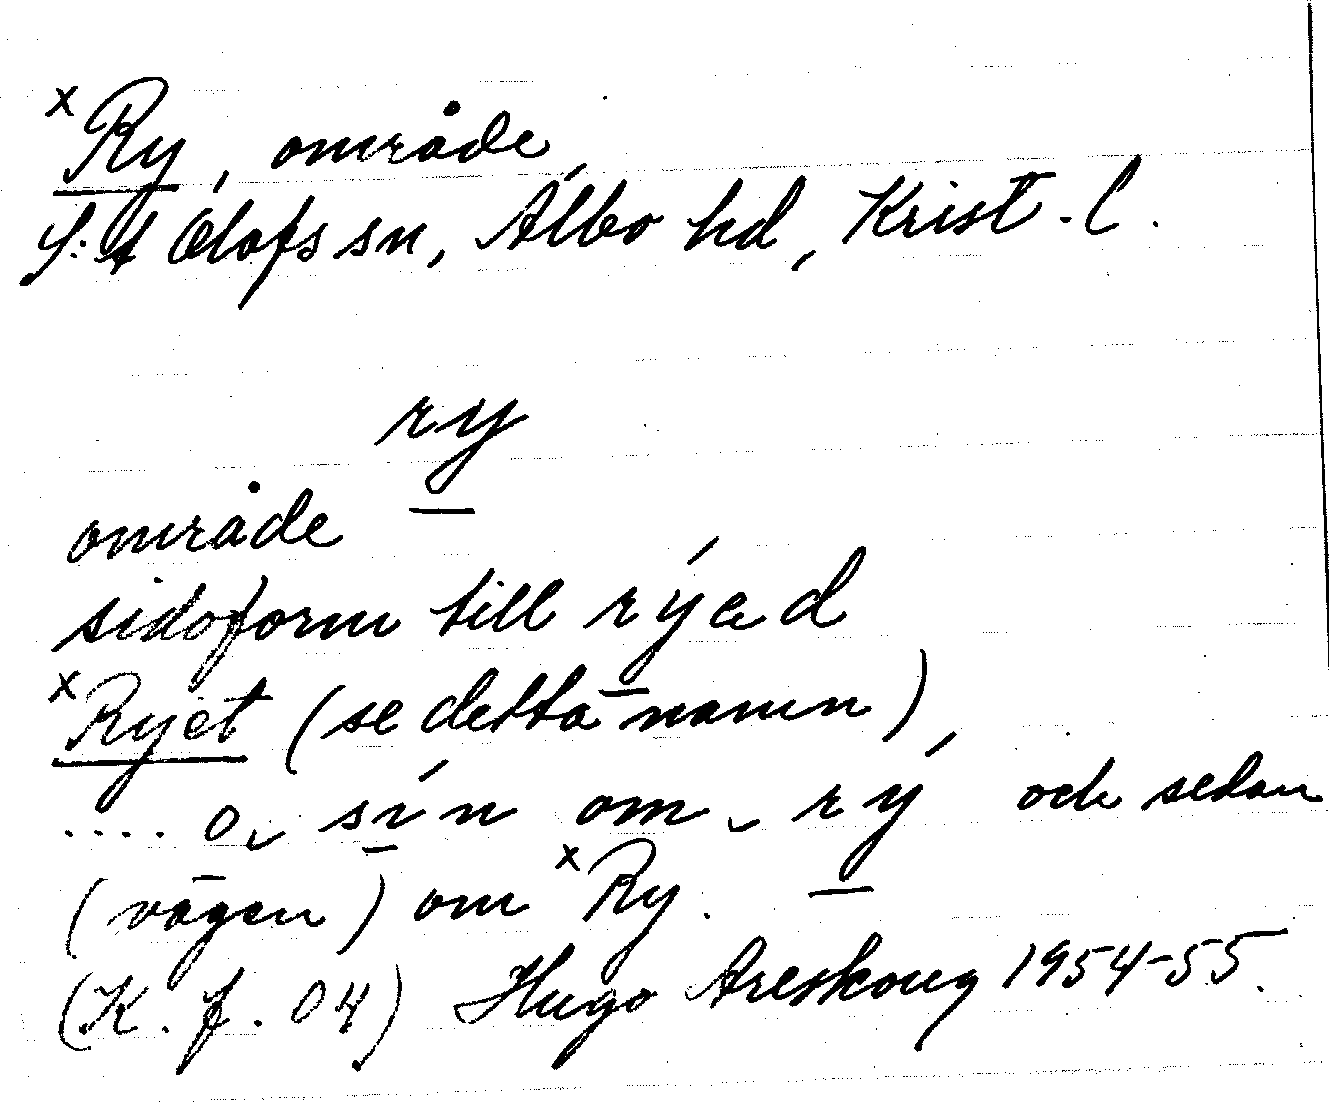 x Ry, område,
S:t Olofs sn, Albo hd, Krist-l.
ry
område
sidoform till rýəd
x Ryet (se detta namn),
.... o, sín om rý och sedan
(vägen) om x Ry.
(K. f. 04) Hugo Areskoug 1954-55.